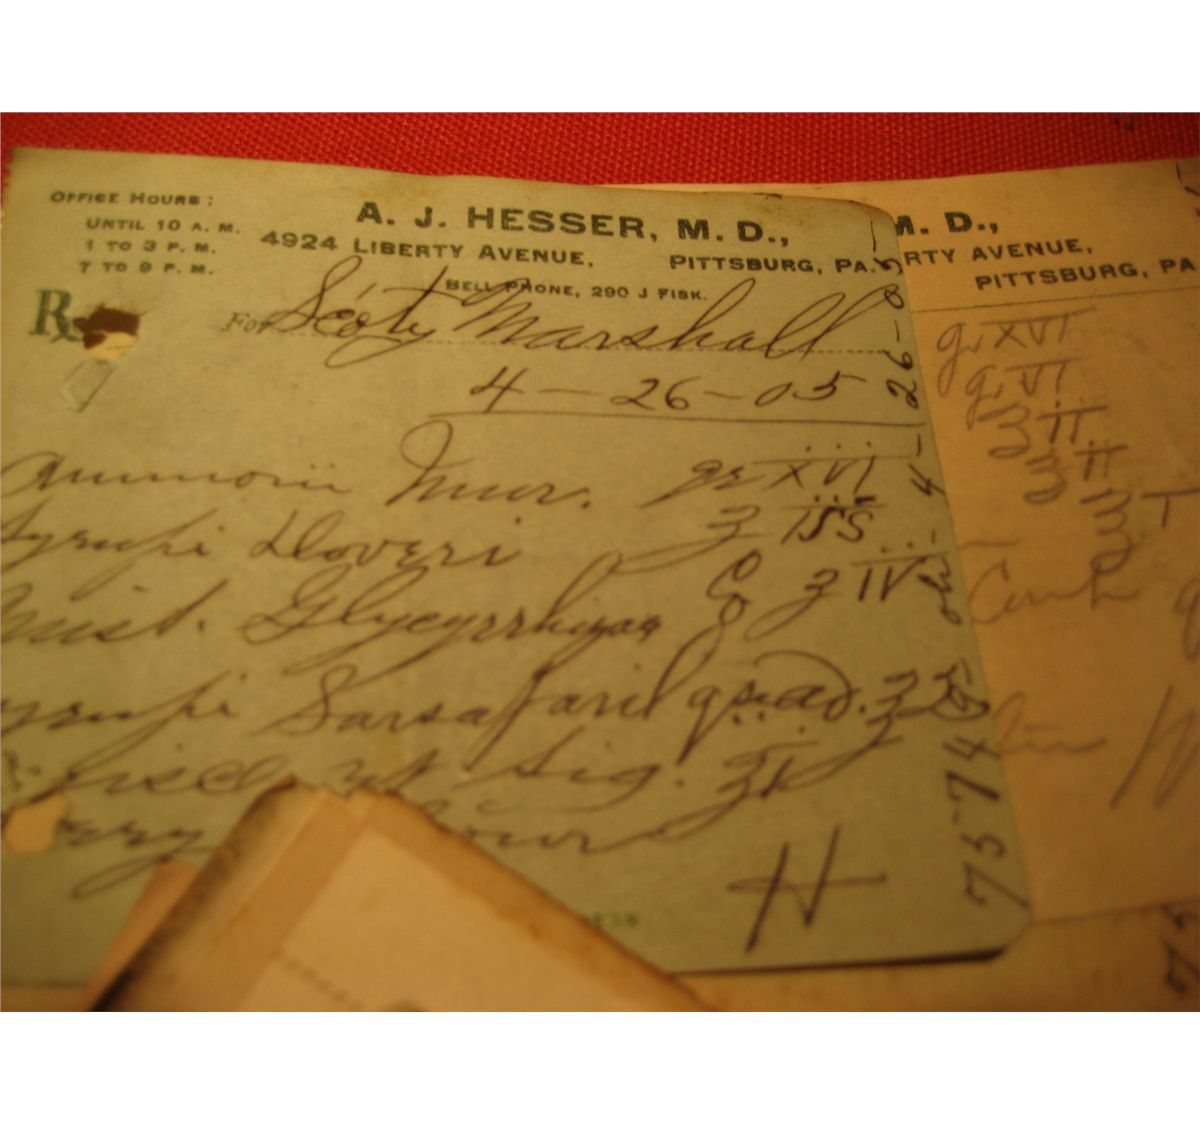 OFFICE HOURS:
UNTIL 10 A. M.
1 TO 3 P. M.
7 TO 9 P. M.
A. J. HESSER, M. D.,
4924 LIBERTY AVENUE, PITTSBURG, PA.
BELL PHONE, 290 J FISK.
Rx
For Scoty Marshall
4-26-05
Ammonii Mur. gr XVI
Syrupi Doveri ʒ iss
Mist. Glycyrrhizae ʒ IV
yrupi Sarsaparil q.s. ad. ʒ
Sig. ʒi
hour
H
75746
M. D.,
RTY AVENUE,
PITTSBURG, PA
gr XVI
gr VI
ʒ II
ʒ II
ʒ I